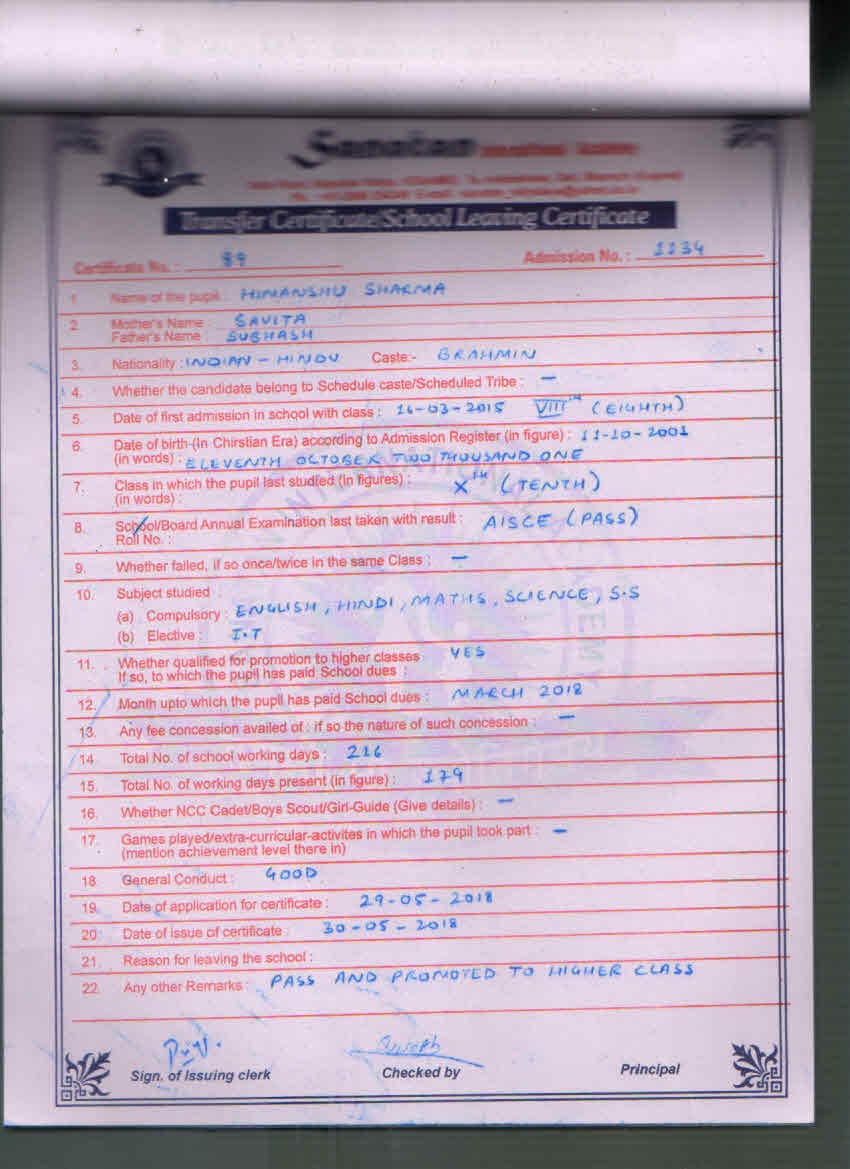 Sanatan
Transfer Certificate/School Leaving Certificate
Certificate No. : 89 Admission No. : 1134
1. Name of the pupil : HIMANSHU SHARMA
2. Mother's Name : SAVITA
Father's Name : SUBHASH
3. Nationality : INDIAN - HINDU Caste:- BRAHMIN
4. Whether the candidate belong to Schedule caste/Scheduled Tribe : —
5. Date of first admission in school with class : 16-03-2015 VIII th (EIGHTH)
6. Date of birth-(In Chirstian Era) according to Admission Register (in figure) : 11-10-2001
(in words) : ELEVENTH OCTOBER TWO THOUSAND ONE
7. Class in which the pupil last studied (In figures) : X th (TENTH)
(in words) :
8. School/Board Annual Examination last taken with result : AISCE (PASS)
Roll No. :
9. Whether failed, if so once/twice in the same Class : —
10. Subject studied :
(a) Compulsory : ENGLISH, HINDI, MATHS, SCIENCE, S.S
(b) Elective : I.T
11. Whether qualified for promotion to higher classes YES
If so, to which the pupil has paid School dues :
12. Month upto which the pupil has paid School dues : MARCH 2018
13. Any fee concession availed of : if so the nature of such concession : —
14. Total No. of school working days : 216
15. Total No. of working days present (in figure) : 179
16. Whether NCC Cadet/Boys Scout/Girl-Guide (Give details) : —
17. Games played/extra-curricular-activites in which the pupil took part : —
(mention achievement level there in)
18. General Conduct : GOOD
19. Date of application for certificate : 29-05-2018
20. Date of issue of certificate : 30-05-2018
21. Reason for leaving the school :
22. Any other Remarks : PASS AND PROMOTED TO HIGHER CLASS
Sign. of Issuing clerk Checked by Principal
INTERNATIONAL ACADEMY